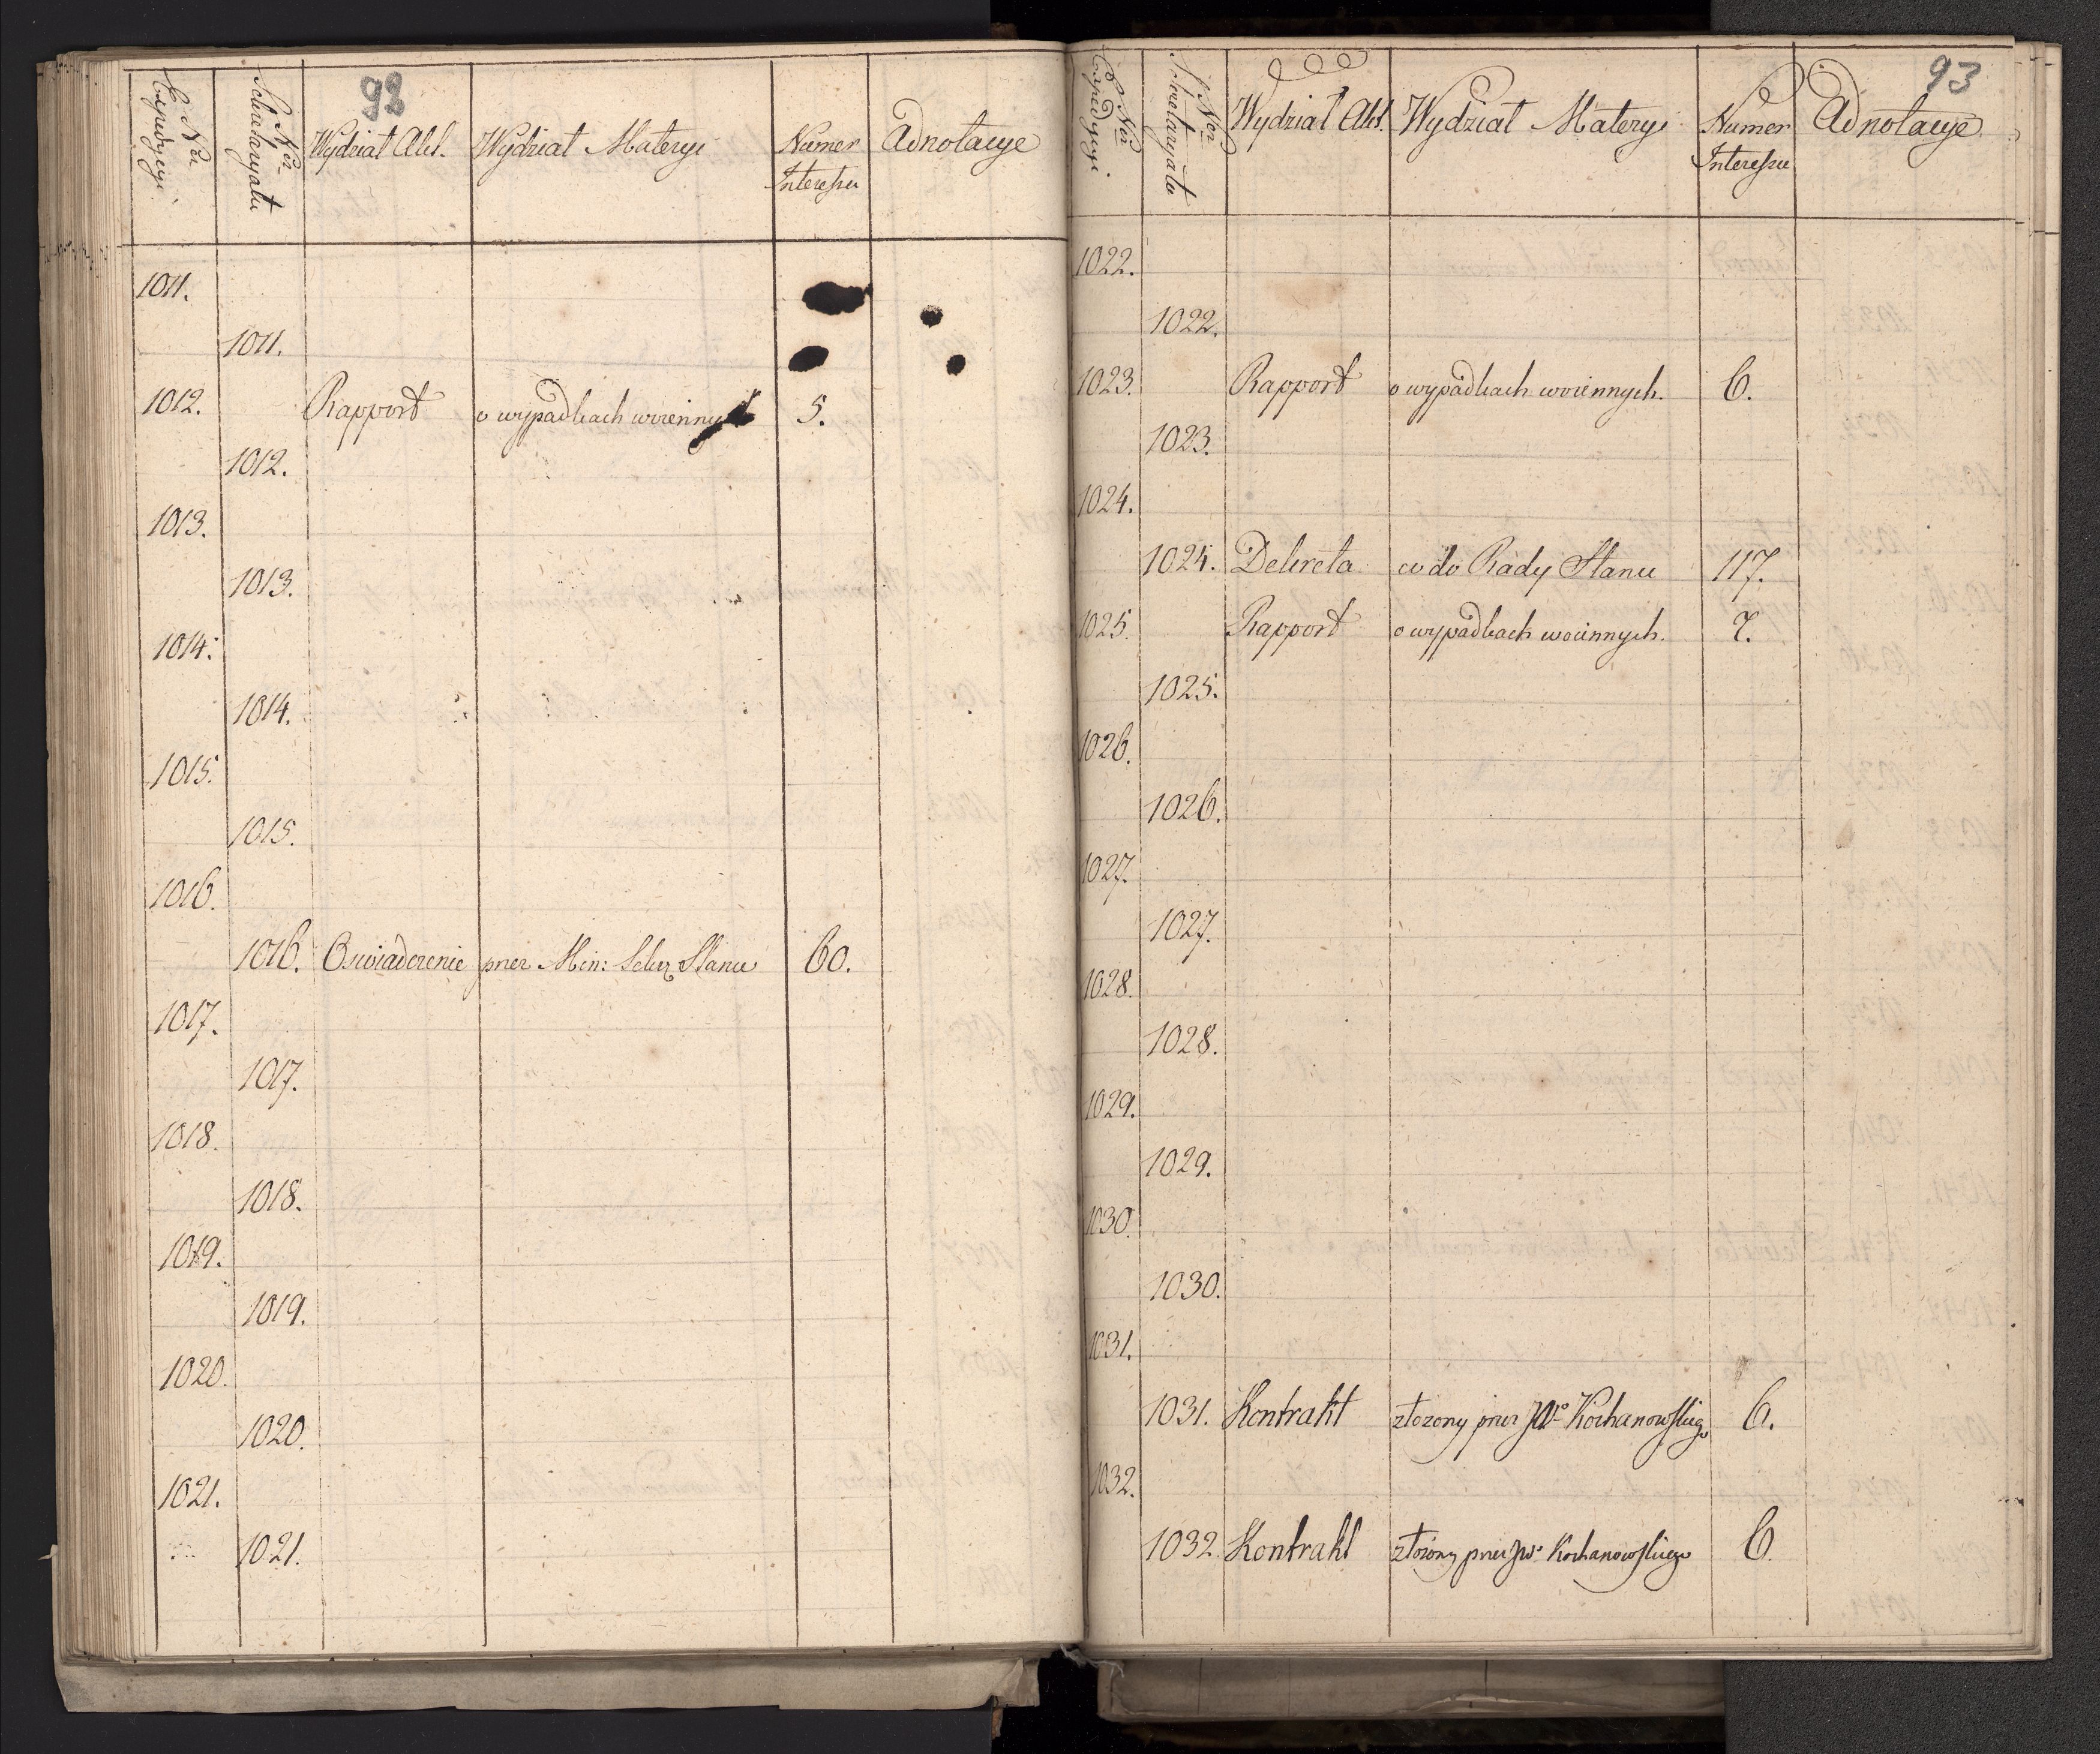 92
Nr Expedycyi
Nr Sekretaryatu
Wydział Akt.
Wydział Materyi
Numer Interessu
Adnotacye
1011.
1011.
1012. Rapport o wypadkach woiennych 5.
1012.
1013.
1013.
1014.
1014.
1015.
1015.
1016.
1016. Oswiadczenie przez Min: Sekr Stanu 60.
1017.
1017.
1018.
1018.
1019.
1019.
1020.
1020.
1021.
1021.
93
Nr Expedycyi
Nr Sekretaryatu
Wydział Akt.
Wydział Materyi
Numer Interessu
Adnotacye
1022.
1022.
1023. Rapport o wypadkach woiennych. 6.
1023.
1024.
1024. Dekreta co do Rady Stanu 117.
1025. Rapport o wypadkach woiennych. 7.
1025.
1026.
1026.
1027.
1027.
1028.
1028.
1029.
1029.
1030.
1030.
1031.
1031. Kontrakt złozony przez JWo Kochanowskiego 6.
1032.
1032. Kontrakt złozony przez JWo Kochanowskiego 6.